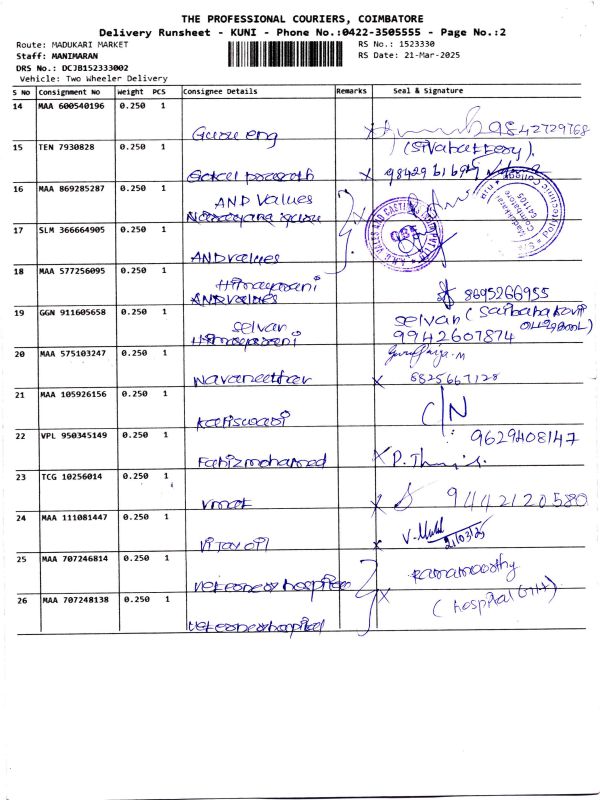 THE PROFESSIONAL COURIERS, COIMBATORE
Delivery Runsheet - KUNI - Phone No.:0422-3505555 - Page No.:2
Route: MADUKARI MARKET RS No.: 1523330
Staff: MANIMARAN RS Date: 21-Mar-2025
DRS No.: DCJB152333002
Vehicle: Two Wheeler Delivery
S No Consignment No Weight PCS Consignee Details Remarks Seal & Signature
14 MAA 600540196 0.250 1
Guru eng 9842729768
15 TEN 7930828 0.250 1
16 MAA 869285287 0.250 1
AND Values
17 SLM 366664905 0.250 1
AND values
18 MAA 577256095 0.250 1
Himayasani
AND values 8695266955
19 GGN 911605658 0.250 1
selvan selvan
Himayasani 9942607874
20 MAA 575103247 0.250 1
Navaneethan 8825667128
21 MAA 105926156 0.250 1
Kaliswari C/N
22 VPL 950345149 0.250 1 9629408147
Fahizmohamed
23 TCG 10256014 0.250 1
9442120580
24 MAA 111081447 0.250 1
21/03/25
25 MAA 707246814 0.250 1
hospital Ramamoorthy
26 MAA 707248138 0.250 1
hospital